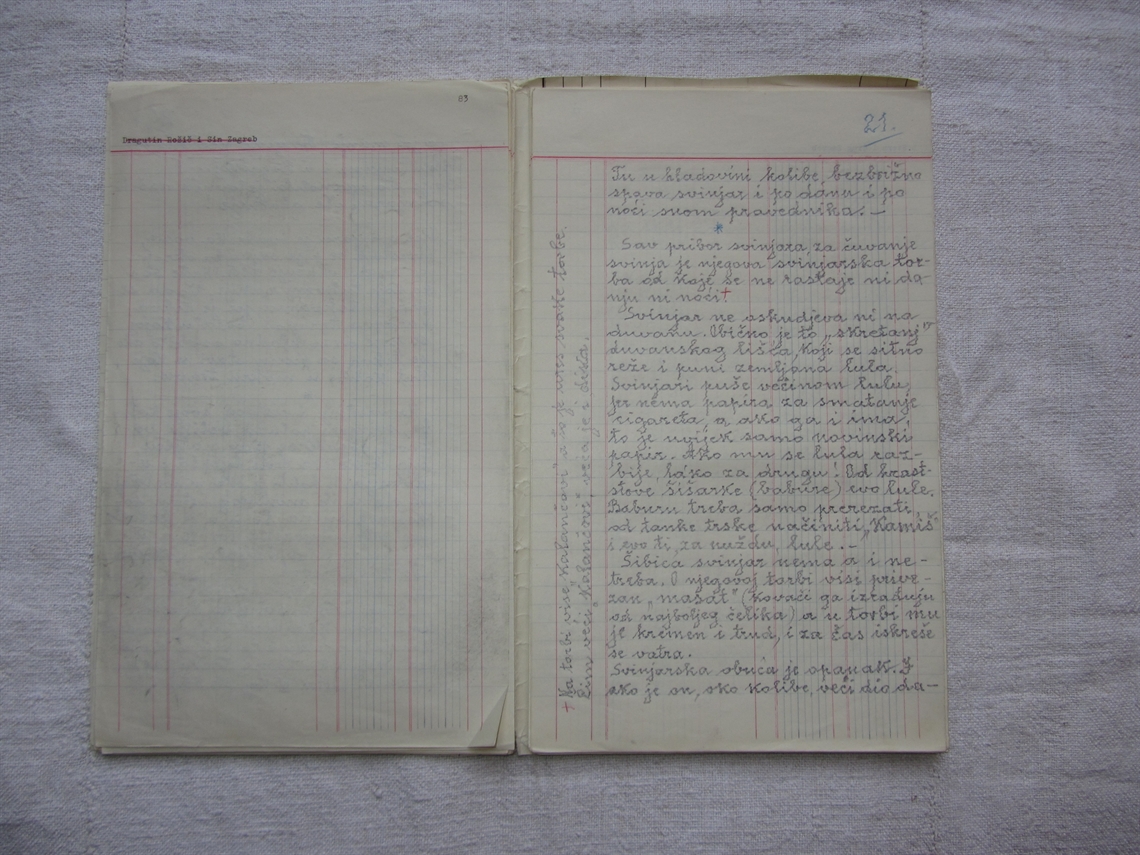 83
Dragutin Rožić i Sin Zagreb
21.
Tu u hladovini kolibe, bezbrižno
spava svinjar i po danu i po
noći snom pravednika. —
*
Sav pribor svinjara, za čuvanje
svinja je njegova svinjarska tor-
ba od koje se ne rastaje ni da-
nju ni noći. +
Svinjar ne oskudjeva ni na
duvanu. Obično je to „skretanj"
duvanskog lišća, koji se sitno
reže i puni zemljana lula.
Svinjari puše većinom lulu,
jer nema papira za smatanje
cigareta, a ako ga i ima,
to je uvijek samo novinski
papir. Ako mu se lula raz-
bije, lako za drugu! Od hrast-
stove šišarke (babure) evo lule.
Baburu treba samo prerezati,
od tanke trske načiniti „Kamiš"
i evo ti, za nuždu, lule. —
Šibica svinjar nema a i ne-
treba. O njegovoj torbi visi prive-
zan „masat" (kovači ga izrađuju
od najboljeg čelika) a u torbi mu
je kremen i trud, i za čas iskreše
se vatra.
Svinjarska obuća je opanak. I
ako je on, oko kolibe, veći dio da-
+ Na torbi vise „kalančevi" a to je ures svake torbe.
Čim veći „kalančevi" veća je i dista.